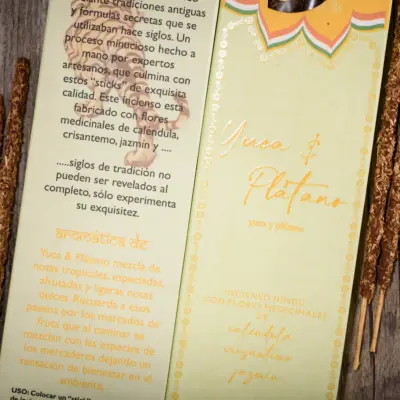 ante tradiciones antiguas
y formulas secretas que se
utilizaban hace siglos. Un
proceso minucioso hecho a
mano por expertos
artesanos, que culmina con
estos "sticks" de exquisita
calidad. Este incienso está
fabricado con flores
medicinales de caléndula,
crisantemo, jazmín y ....
.....siglos de tradición no
pueden ser revelados al
completo, sólo experimenta
su exquisitez.
aromática de
Yuca & Plátano mezcla de
notas tropicales, especiadas,
afrutadas y ligeras notas
dulces. Recuerda a esos
paseos por los mercados de
fruta que al caminar se
mezclan con las especias de
los mercaderes dejando un
sensación de bienestar en el
ambiente.
USO: Colocar un "stick"
Yuca &
Plátano
yuca y plátano
INCIENSO HINDÚ
CON FLORES MEDICINALES
DE
caléndula
crisantemo
jazmín